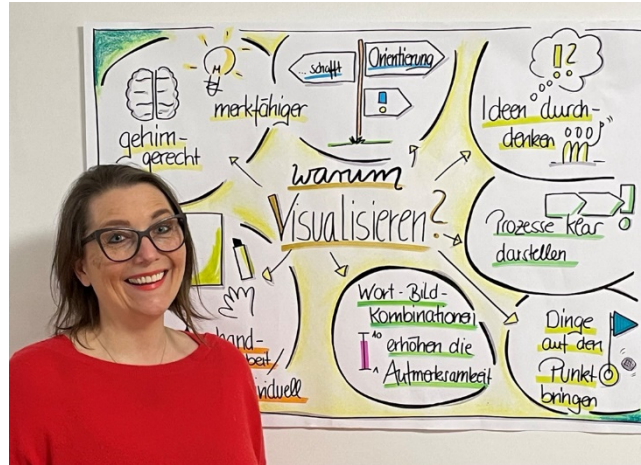 gehirn-
gerecht
merkfähiger
schafft
Orientierung
!
!?
Ideen durch-
denken
warum
Visualisieren?
Prozesse klar
darstellen
Wort-Bild-
Kombinationen
10
erhöhen die
1
Aufmerksamkeit
Dinge
auf den
Punkt
bringen